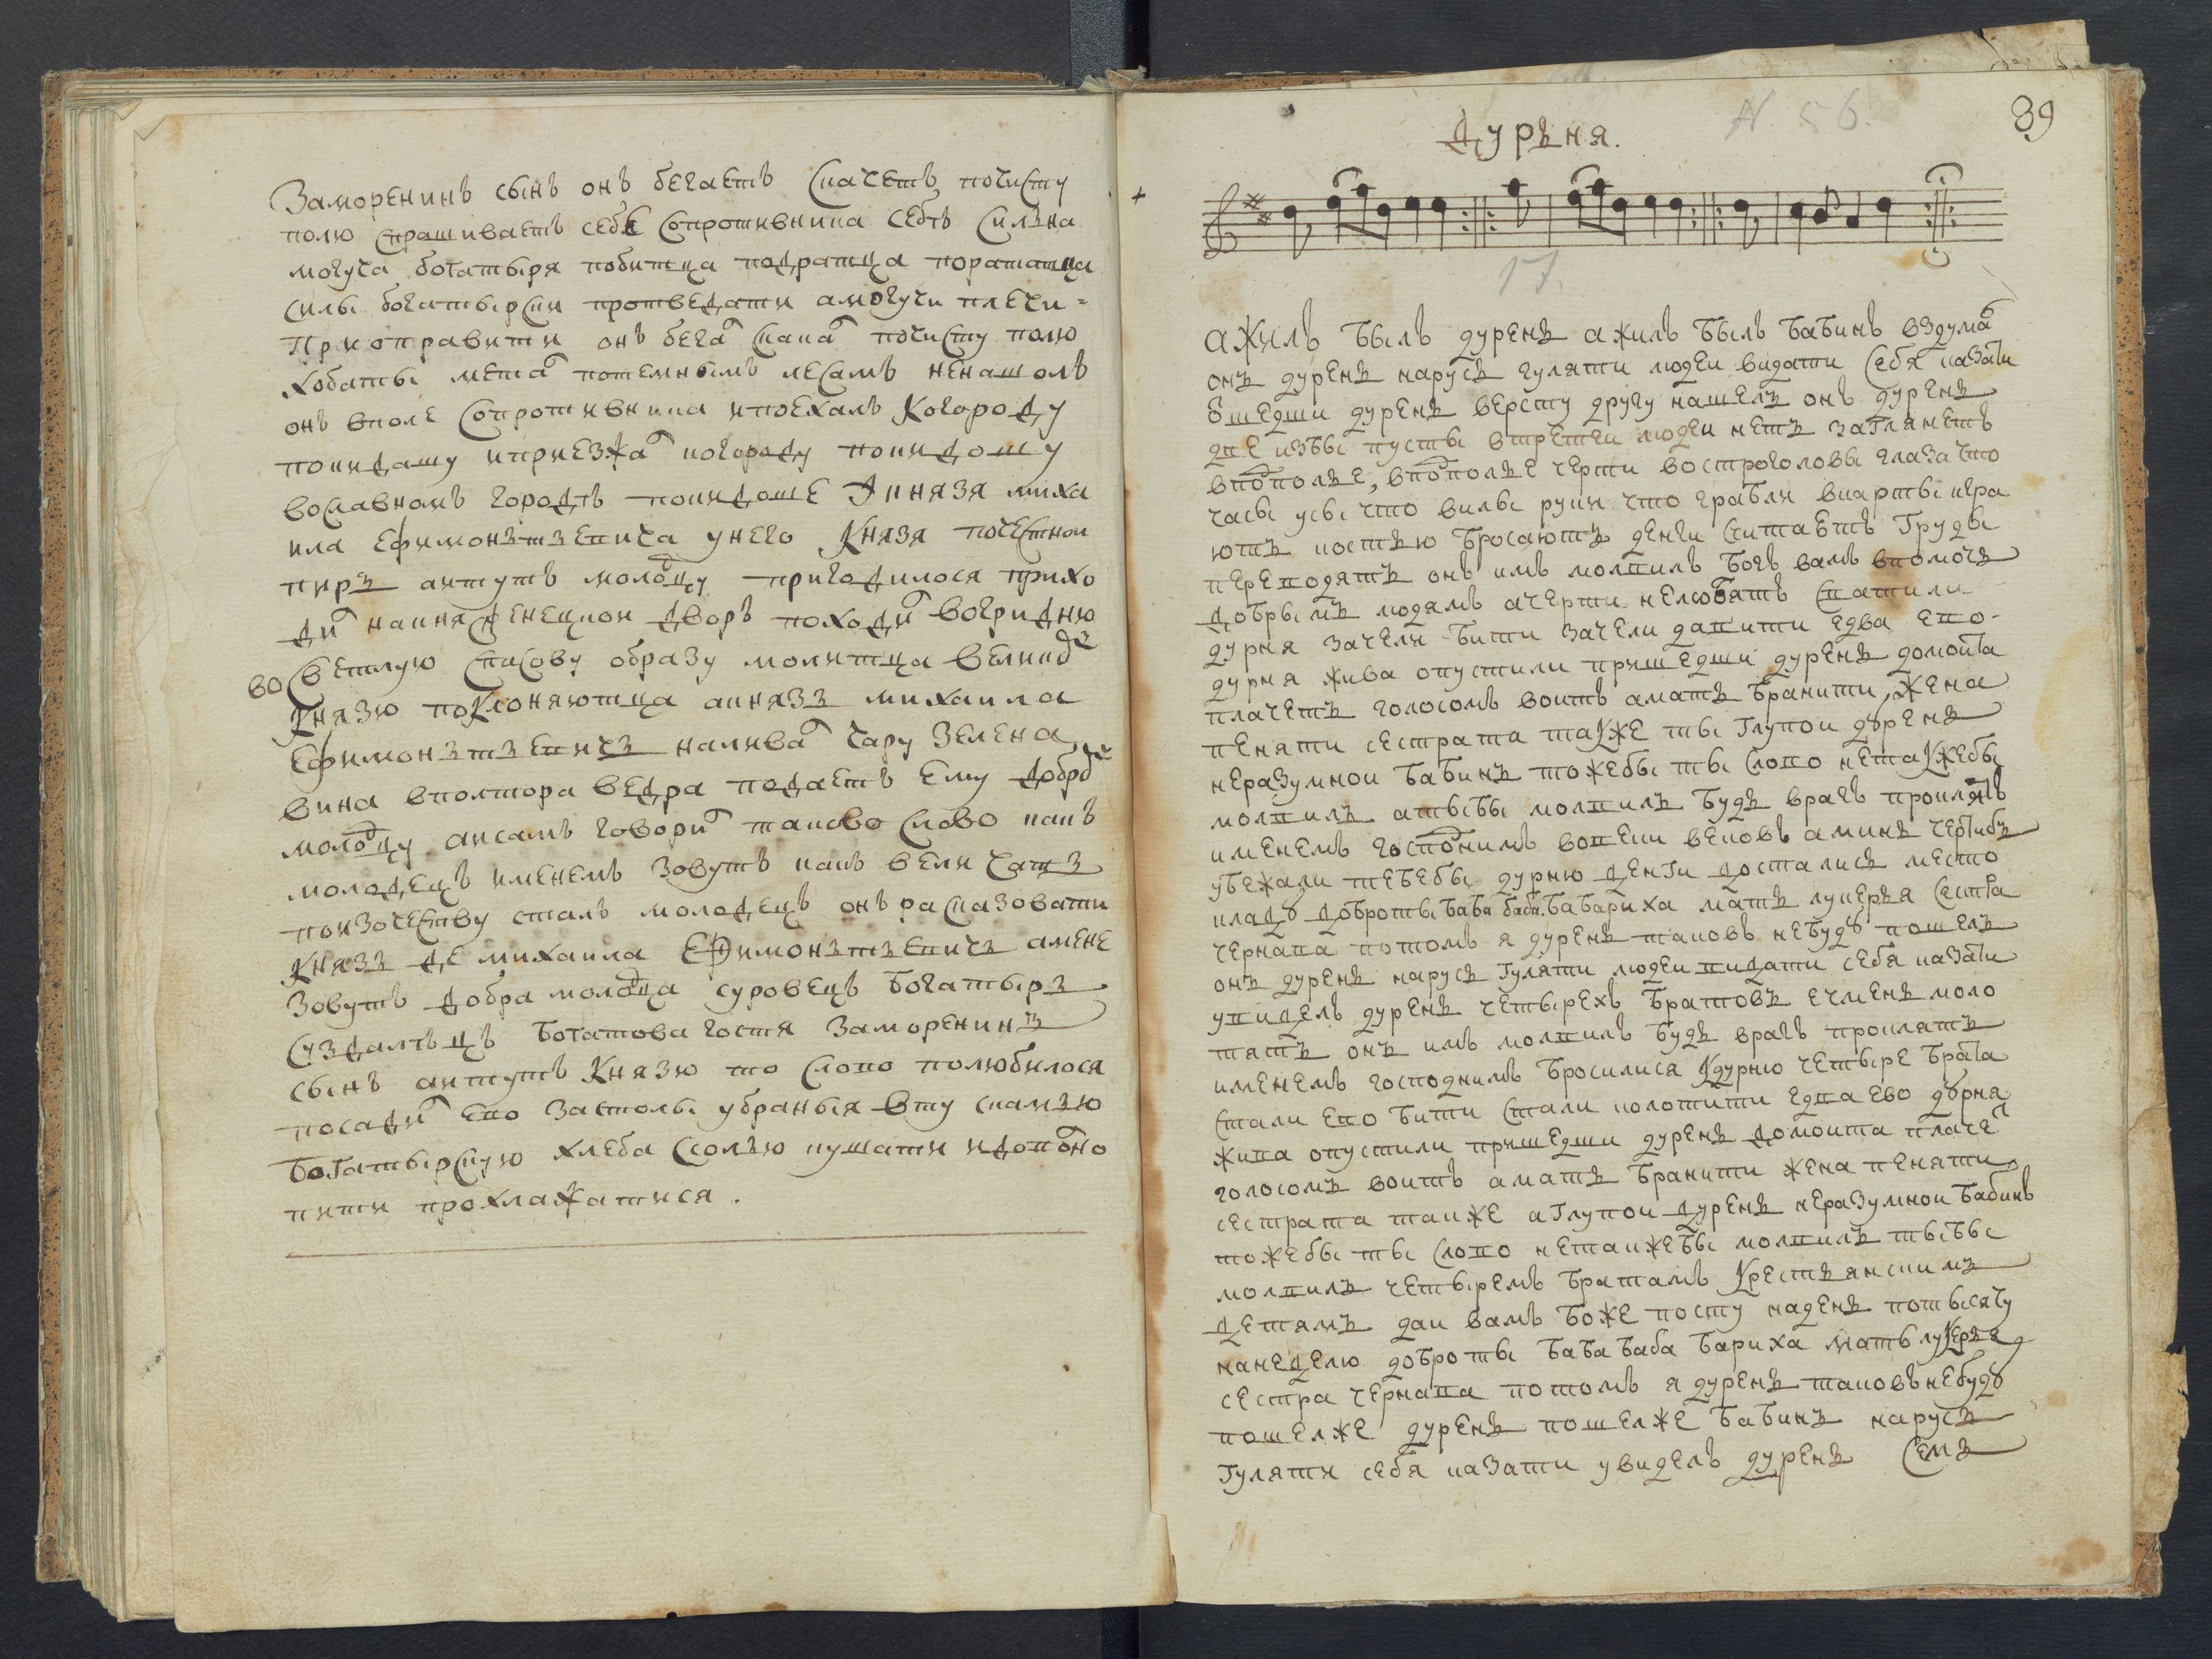 Заморенинъ сынъ онъ бегаетъ скачетъ почисту
полю спрашиваетъ себѣ сопротивника себѣ силна
могуча богатыря побитца подратца поратитца
силы богатырски протведати амогучи плечи -
приоправити онъ бегаᵗ скакаᵗ почисту полю
хобаты метаᵗ потемнымъ лесамъ ненашолъ
онъ вполе сопротивника ипоехалъ Когороду
покидашу иприезжаᵗ когороду покидошу
вославномъ городѣ покидоше ꙋкнязя миха
ила ефимонтьевича унего Князя почестнои
пиръ аитутъ молоᵈцу пригодилося прихо
диᵗ накняженецкои дворъ походиᵗ вогридню
во светлую спасову образу молитца великоᵈ
Князю поклоняютца акнязь михаила
Ефимонтьевичь наливаᵗ чару зелена
вина вполтора ведра подаетъ ему доброᵈ
молоᵈцу аисамъ говориᵗ таково слово какъ
молодецъ именемъ зовутъ какъ величать
поизочеству сталъ молодецъ онъ расказовати
Князь де михаила Ефимонтьевичь амене
зовутъ добра молоᵈца суровецъ богатырь
суздалецъ богатова гостя заморенинъ
сынъ аитутъ Князю то слово полюбилося
посадиᵗ ево застолы убраныя вту скамью
богатырскую хлеба ссолью кушати идоволно
пити прохлажатися .
39
N 56.
Дурѣня.
17.
Ажилъ былъ дурень ажилъ былъ бабинъ вздумаᵗ
онъ дурень нарусь гуляти людеи видати себя казати
ꙋшедши дурень версту другу нашелъ онъ дурень
две избы пусты втретеи людеи нетъ заглянетъ
вподполье, вподполье черти востроголовы глаза что
часы усы что вилы руки что грабли вкарты игра
ютъ костью бросаютъ денги считаетъ груды
переводятъ онъ имъ молвилъ богъ вамъ впомочь
добрымъ людямъ ачерти нелюбятъ схватили
дурня зачели бити зачели давити едва ево-
дурня жива опустили пришедши дурень домоита
плачетъ голосомъ воитъ амать бранити, жена
пеняти сестрата также ты глупои дꙋрень
неразумнои бабинъ тожебы ты слово нетакжебы
молвилъ атыбы молвилъ будь врагъ проклятъ
именемъ господнимъ вовеки вековъ аминь чертибъ
убежали тебебы дурню денги достались место
кладꙋ доброты баба баба. бабариха мать лукерья сестра
чернава потомъ я дурень таковъ небудꙋ пошелъ
онъ дурень нарусь гуляти людеи видати себя казати
увиделъ дурень четырехъ братовъ ечмень моло
тятъ онъ имъ молвилъ будь врагъ проклятъ
именемъ господнимъ бросилися Кдурню четыре брата
стали ево бити стали колотити едва ево дꙋрня
жива опустили пришедши дурень домоита плачеᵗ
голосомъ воитъ амать бранити жена пеняти
сестрата также аглупои дурень неразумнои бабинъ
тожебы ты слово нетакжебы молвилъ тыбы
молвилъ четыремъ братамъ Крестьянскимъ
детямъ даи вамъ боже посту надень потысячу
нанеделю доброты баба баба бариха мать лукерья
сестра чернава потомъ я дурень таковъ небудꙋ
пошелже дурень пошелже бабинъ нарусь
гуляти себя казати увиделъ дурень семь